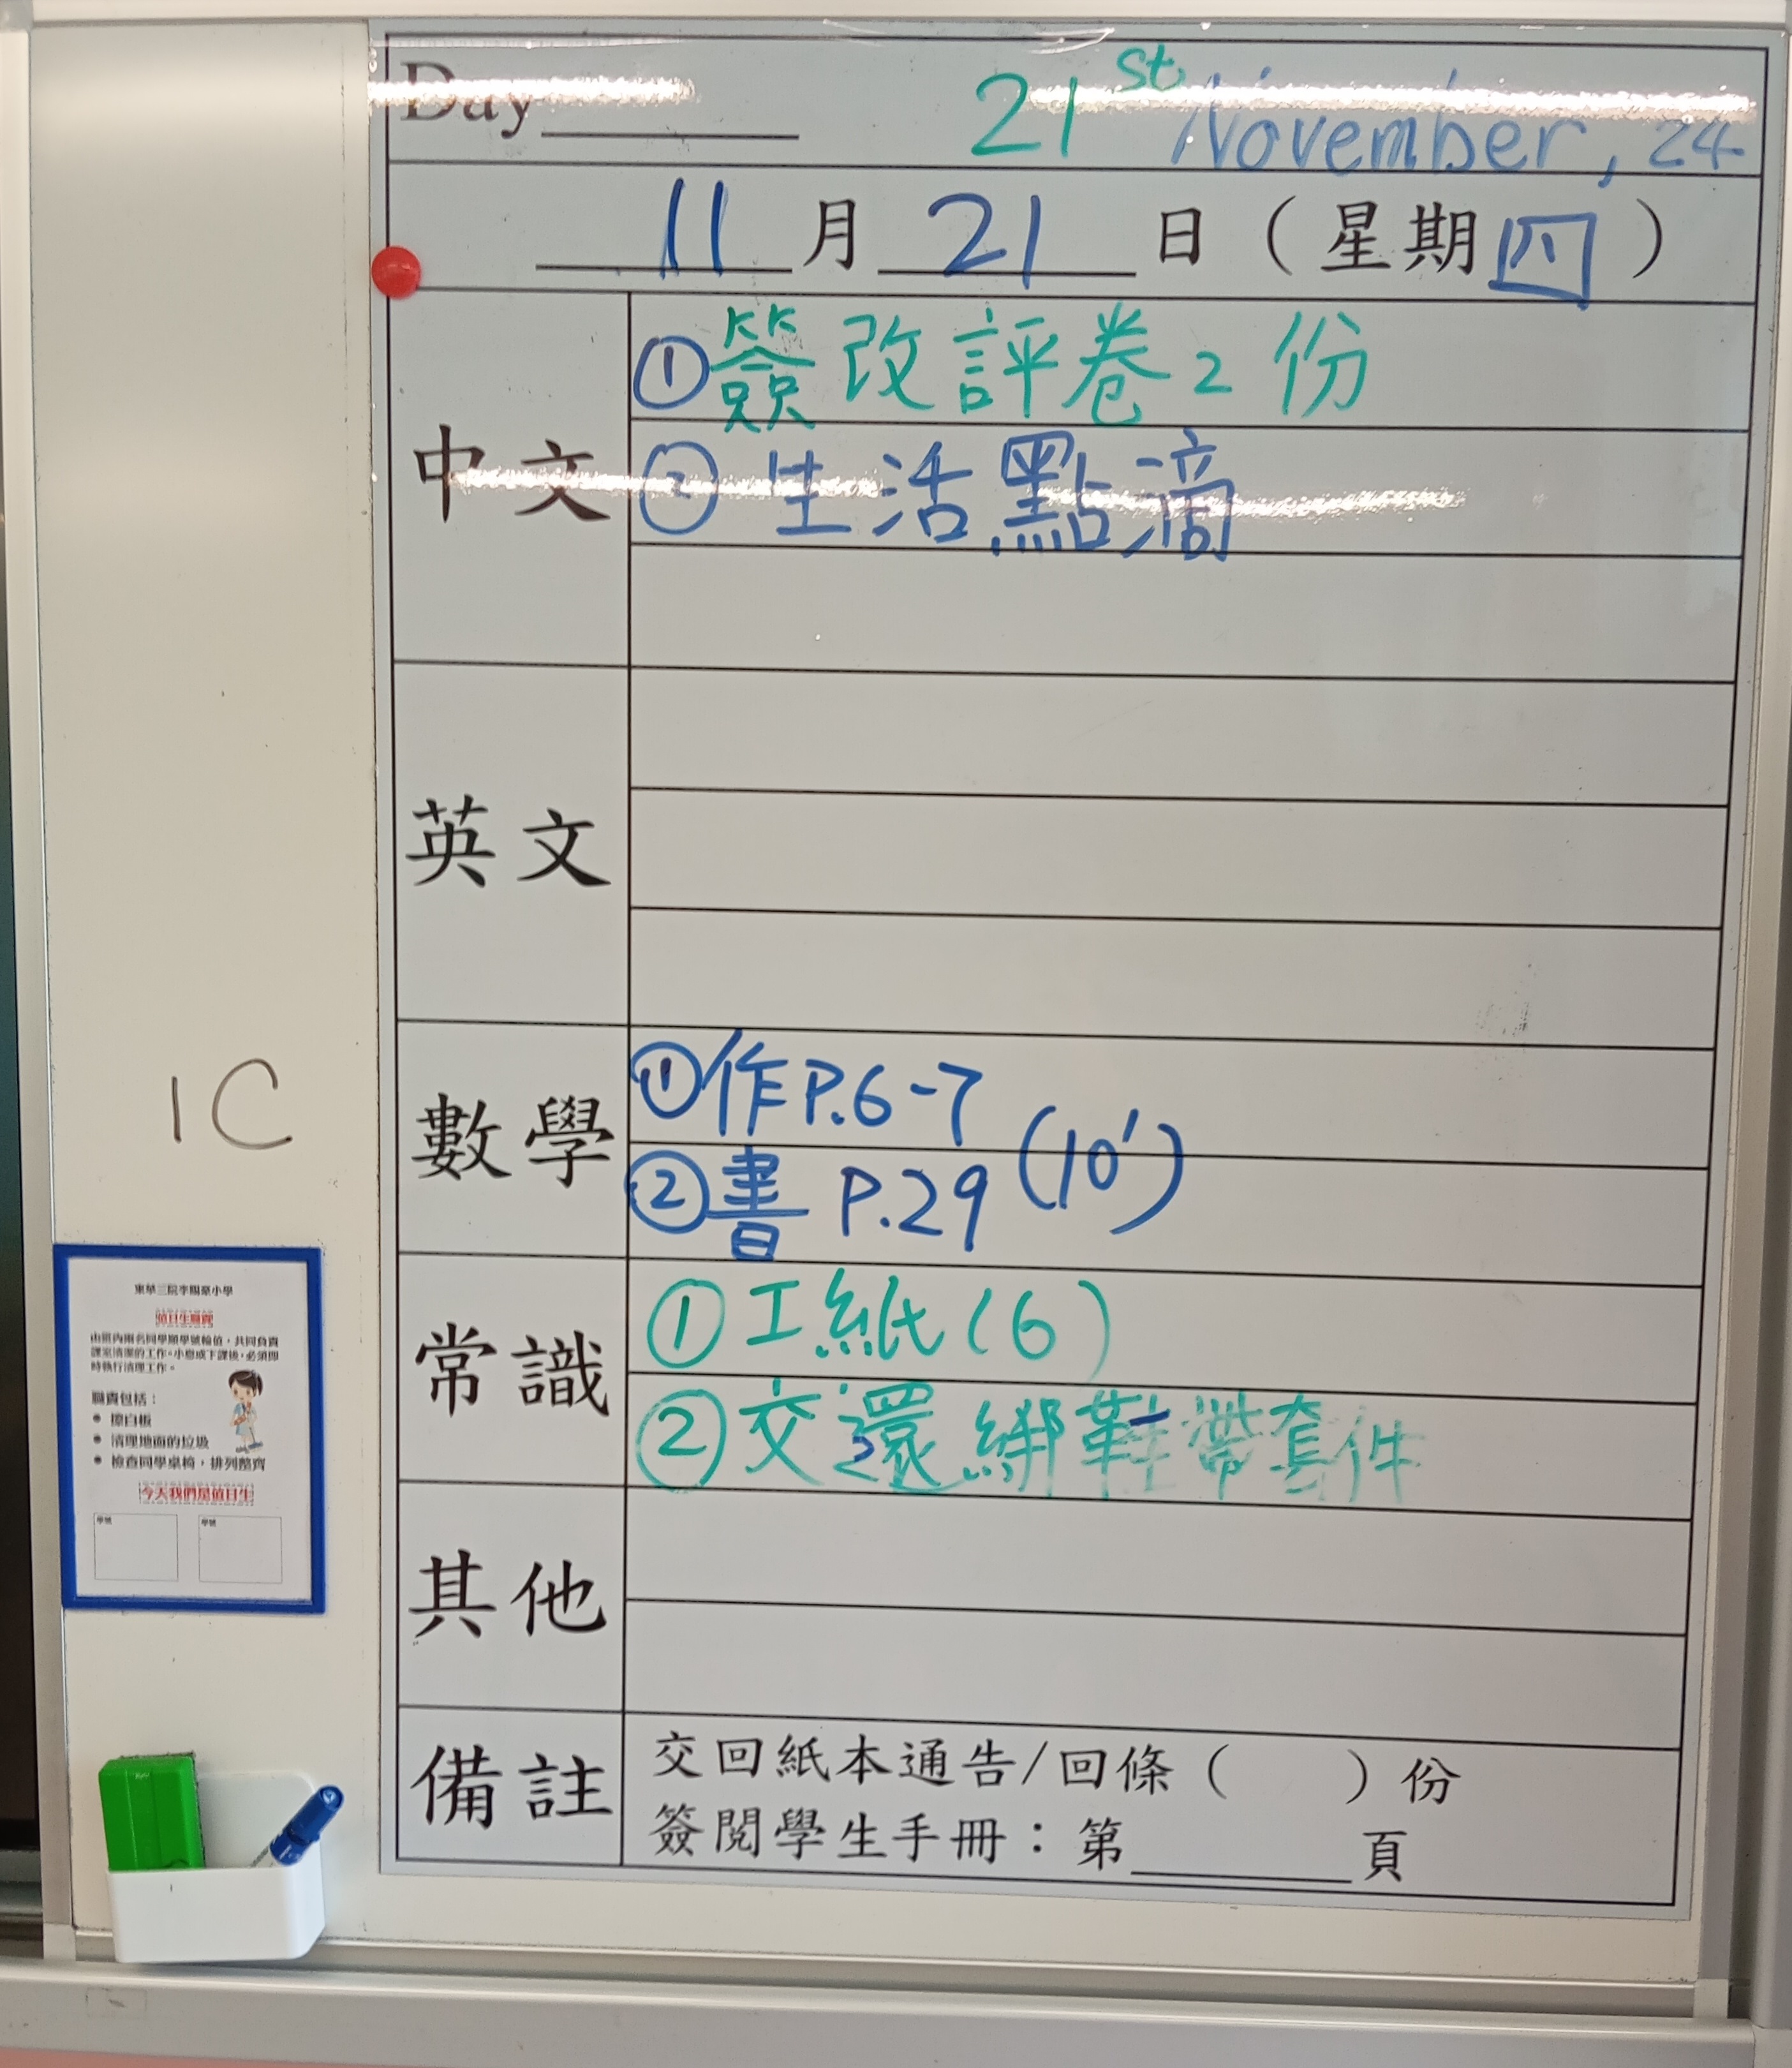 Day
21st November, 24
11月21日（星期四）
中文
①簽改評卷2份
②生活點滴
英文
數學
①作P.6-7
②書 P.29 (10')
常識
①工紙(6)
②交還綁鞋帶套件
其他
備註
交回紙本通告/回條（ ）份
簽閱學生手冊：第 頁
1C
東華三院李賜豪小學
值日生職責
由班內兩名同學順學號輪值，共同負責
課室清潔的工作。小息或下課後，必須即
時執行清理工作。
職責包括：
● 擦白板
● 清理地面的垃圾
● 檢查同學桌椅，排列整齊
今天我們是值日生
學號 學號